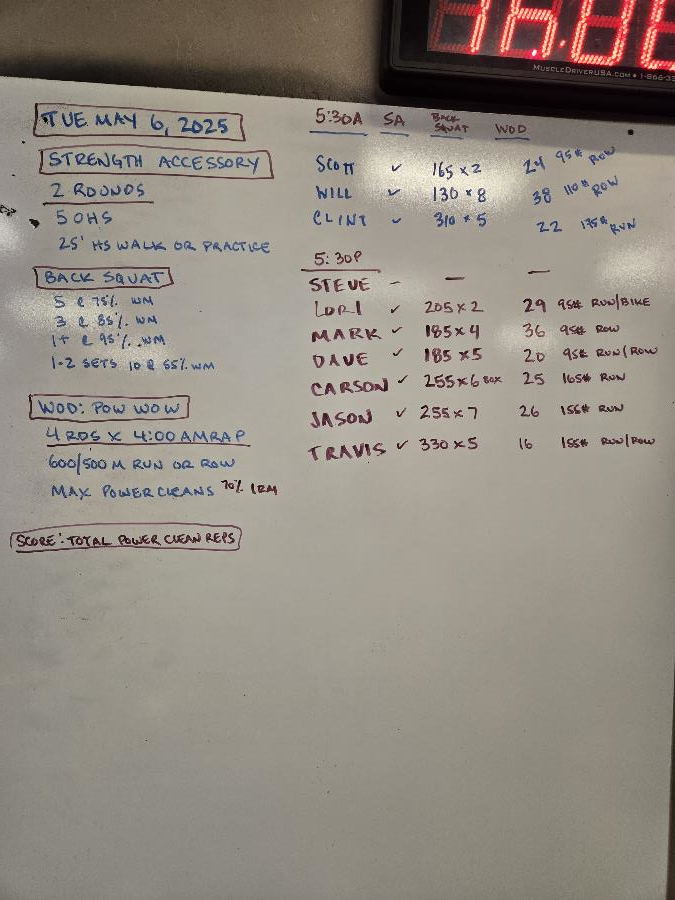 MUSCLEDRIVERUSA.COM • 1-866-
TUE MAY 6, 2025
STRENGTH ACCESSORY
2 ROUNDS
5 OHS
25' HS WALK OR PRACTICE
BACK SQUAT
5 @ 75% WM
3 @ 85% WM
1+ @ 95% WM
1-2 SETS 10 @ 55% WM
WOD: POW WOW
4 RDS X 4:00 AMRAP
600/500 M RUN OR ROW
MAX POWER CLEANS 70% 1RM
SCORE: TOTAL POWER CLEAN REPS
5:30A SA BACK SQUAT WOD
SCOTT ✓ 165 x 2 24 95# ROW
WILL ✓ 130 x 8 38 110# ROW
CLINT ✓ 310 x 5 22 175# RUN
5:30P
STEVE — — —
LORI ✓ 205 x 2 29 95# RUN/BIKE
MARK ✓ 185 x 4 36 95# ROW
DAVE ✓ 185 x 5 20 95# RUN/ROW
CARSON ✓ 255 x 6 BOX 25 165# RUN
JASON ✓ 255 x 7 26 155# RUN
TRAVIS ✓ 330 x 5 16 155# RUN/ROW